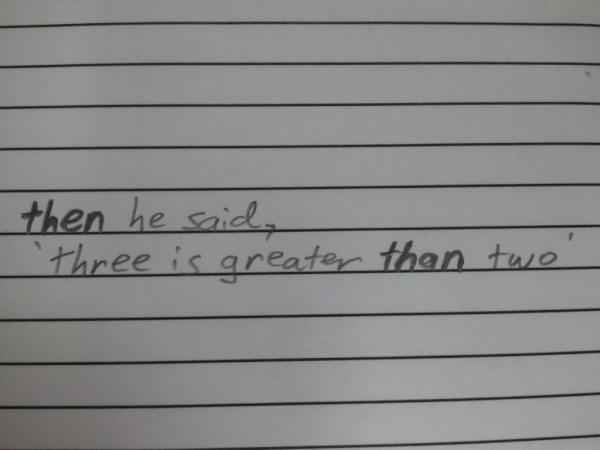 then he said,
'three is greater than two'